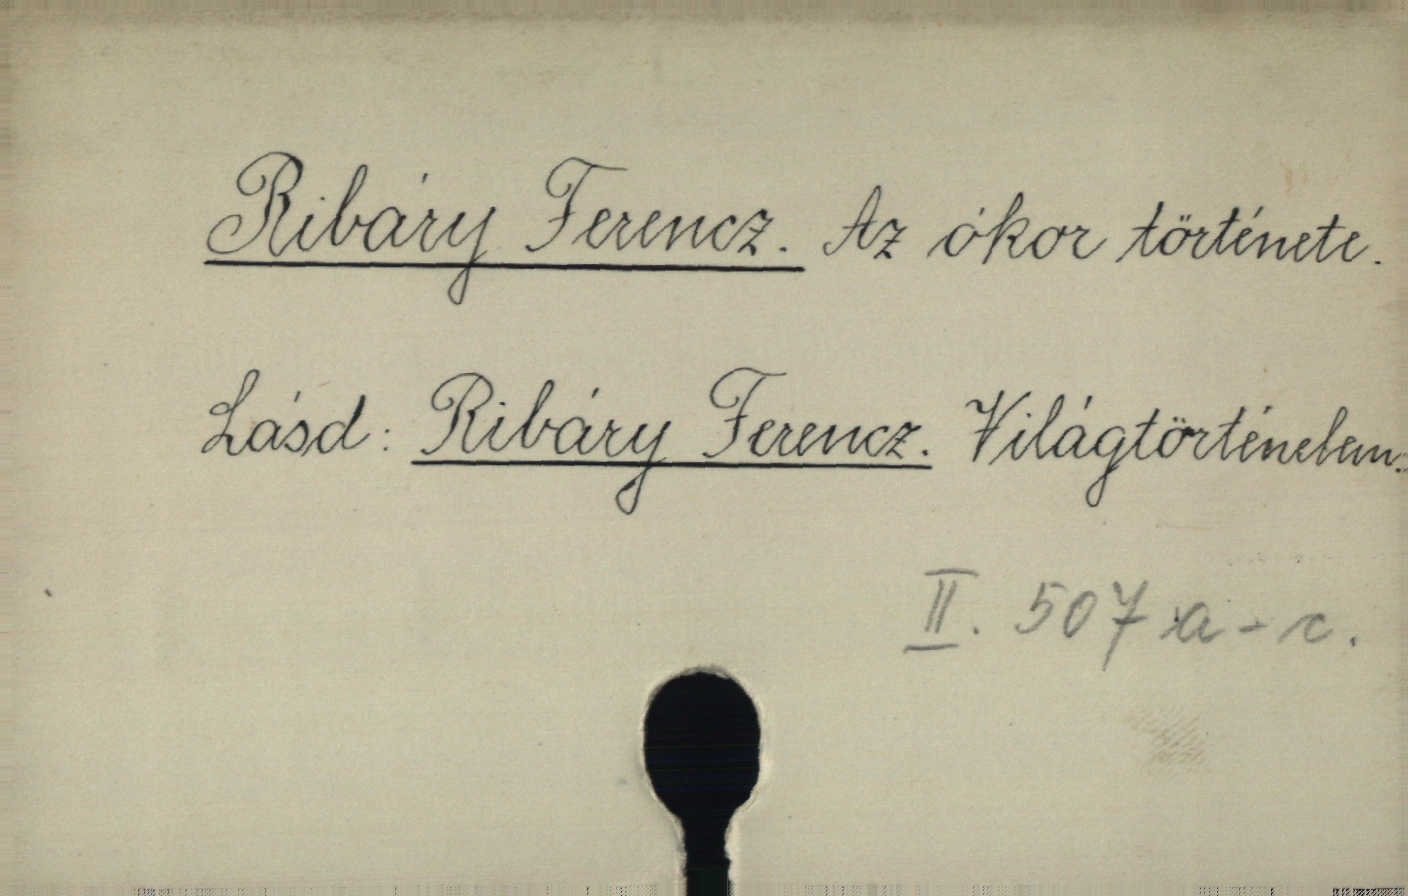 Ribáry Ferencz. Az ókor története.
Lásd: Ribáry Ferencz. Világtörténelem.
II. 507 a - c.